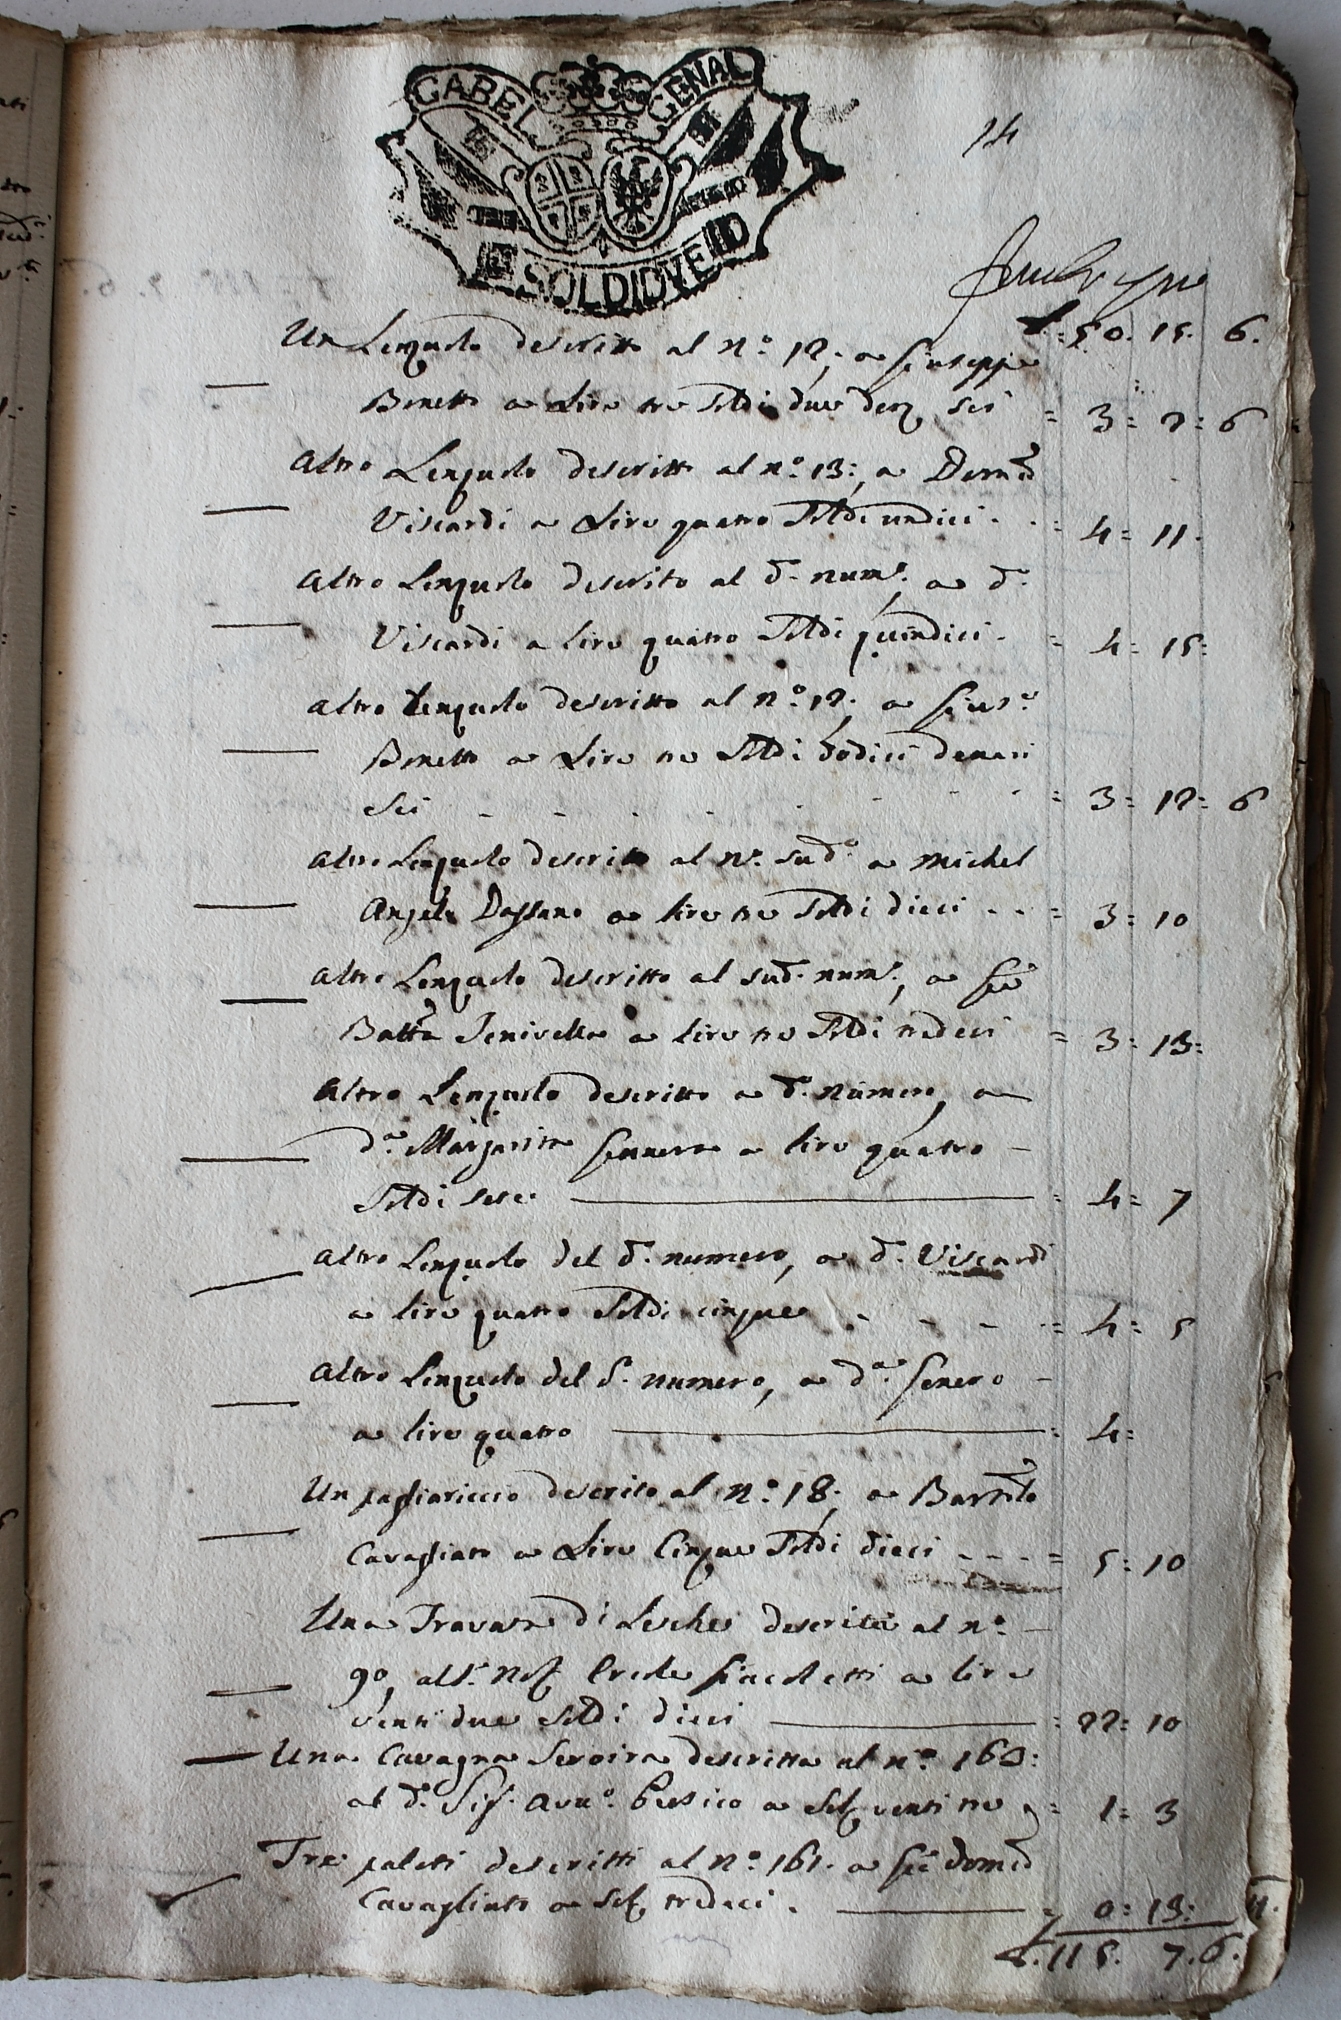 GABEL GENAL
SOLDI DVE
14
L. 50. 15. 6.
Un Lenzuolo descritto al n.° 12, a Giuseppe
Bonetto a Lire tre Soldi due den. sei = 3= 2= 6
Altro Lenzuolo descritto al n.° 13:, a Dom.co
Viscardi a Lire quatro Soldi undici . = 4= 11.
Altro Lenzuolo descrito al d.° num.°, a d.°
Viscardi a lire quatro Soldi quindici. = 4= 15=
Altro Lenzuolo descritto al n.° 12, a Gius.e
Bonetto a Lire tre Soldi dodici denari
Sei . . . . = 3= 12= 6
Altro Lenzuolo descritto al n.° sud.° a Michel
Angelo Dassano a lire tre Soldi dieci . . = 3= 10
Altro Lenzuolo descritto al sud.° num.°, a Gio
Batta Senivella a lire tre Soldi tredeci = 3= 13=
Altro Lenzuolo descritto a d.° numero, a
d.a Margarita a lire quatro
Soldi sete. = 4= 7
Altro Lenzuolo del d.° numero, a d.° Viscardi
a lire quatro Soldi cinque . - - = 4= 5
Altro Lenzuolo del d.° numero, a d.a
a lire quatro = 4=
Un pagliariccio descrito al n.° 18, a Bartolo
Cavagliato a Lire Cinque Soldi dieci - - - = 5= 10
Una Travata di Lesche descrita al n.°
90, al S.r Not. Giacoletti a lire
venti due Soldi dieci = 22= 10
Una Cavagna descritta al n.° 160:
al d.° Sig. Avv.° a Sol. venti tre = 1= 3
Tre paleti descritti al n.° 161. a Gio Dom.co
Cavagliato a Sol. tredeci. = 0= 13=
L. 115. 7. 6.